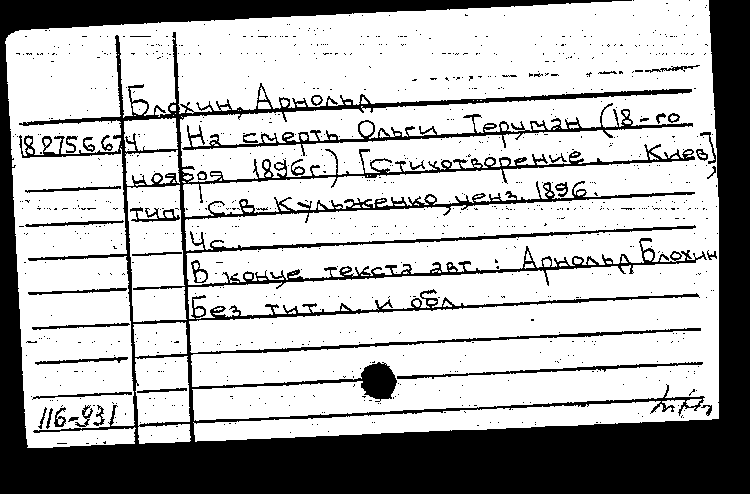 Блохин, Арнольд
18.275.6.674. На смерть Ольги Теруман (18-го
ноября 1896г.). [Стихотворение. Киев],
тип. С.В. Кульженко, ценз. 1896.
4с.
В конце текста авт.: Арнольд Блохин
Без тит. л. и обл.
116-931